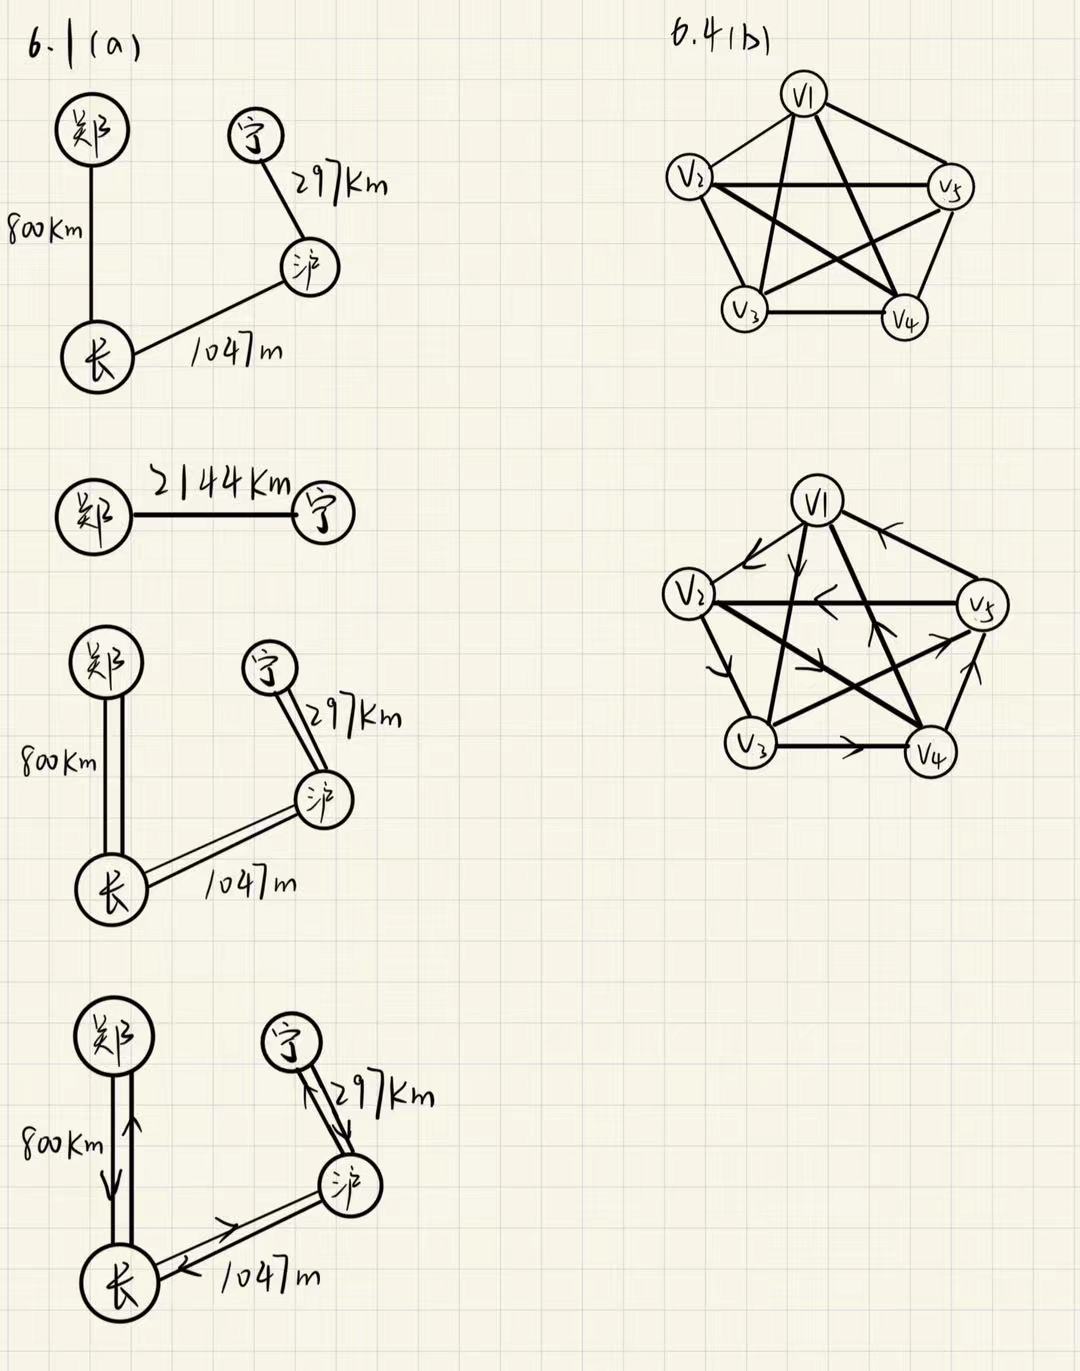 6.1(a)
郑
宁
297Km
800Km
沪
长
1047m
郑
2144Km
宁
郑
宁
297Km
800Km
沪
长
1047m
郑
宁
297Km
800Km
沪
长
1047m
6.4(b)
V1
V2
V5
V3
V4
V1
V2
V5
V3
V4